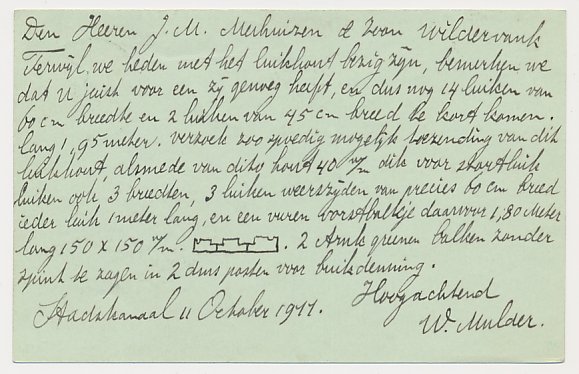 Den Heeren J. M. Meihuizen & Zoon Wildervank
Terwijl, we heden met het luikhout bezig zijn, bemerken we
dat U juist voor een zij genoeg heeft, en dus nog 14 luiken van
60 cm breedte en 2 luiken van 45 cm breed te kort komen.
lang 1,95 meter. verzoek zoo spoedig mogelijk toezending van dit
luikhout, alsmede van dito hout 40 m/m dik voor stortluik
luiken ook, 3 breedten, 3 luiken weerszijden van precies 60 cm breed
ieder luik 1 meter lang, en een vuren vorstbalkje daarvoor 1,80 Meter
lang 150 x 150 m/m. 2 Amk grenen balken zonder
spint te zagen in 2 duis posten voor buikdenning.
Hoogachtend
Stadskanaal 11 October 1911.
W. Mulder.